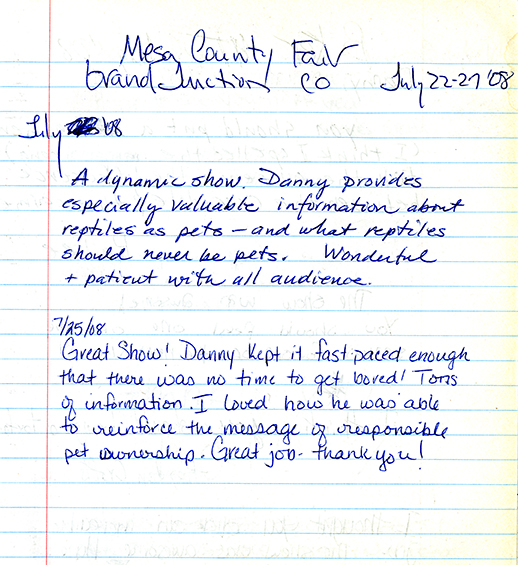 Mesa County Fair
Grand Junction CO July 22-27 '08
July '08
A dynamic show. Danny provides
especially valuable information about
reptiles as pets – and what reptiles
should never be pets. Wonderful
+ patient with all audience.
7/25/08
Great Show! Danny kept it fast paced enough
that there was no time to get bored! Tons
of information. I loved how he was able
to reinforce the message of responsible
pet ownership. Great job - thank you!